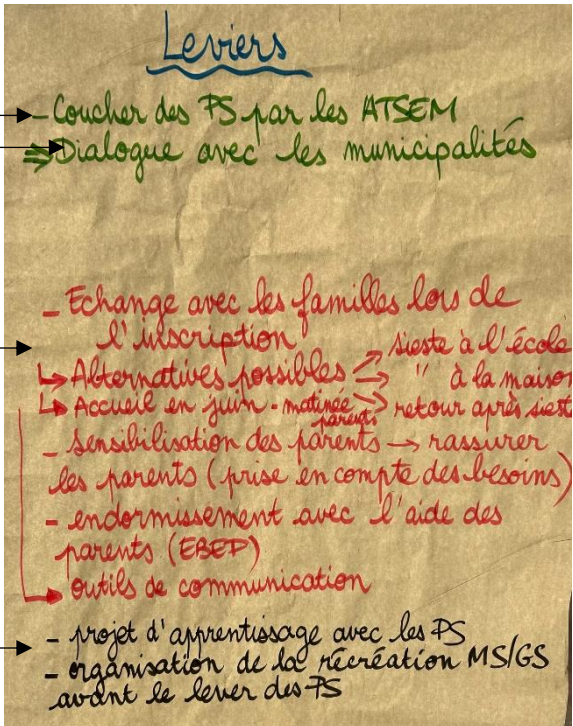 Leviers
- Coucher des PS par les ATSEM
⇒ Dialogue avec les municipalités
- Echange avec les familles lors de
l'inscription
↳ Alternatives possibles → sieste à l'école
→ " à la maison
↳ Accueil en juin - matinée parents → retour après sieste
- sensibilisation des parents → rassurer
les parents (prise en compte des besoins)
- endormissement avec l'aide des
parents (EBEP)
→ outils de communication
- projet d'apprentissage avec les PS
- organisation de la récréation MS/GS
avant le lever des PS